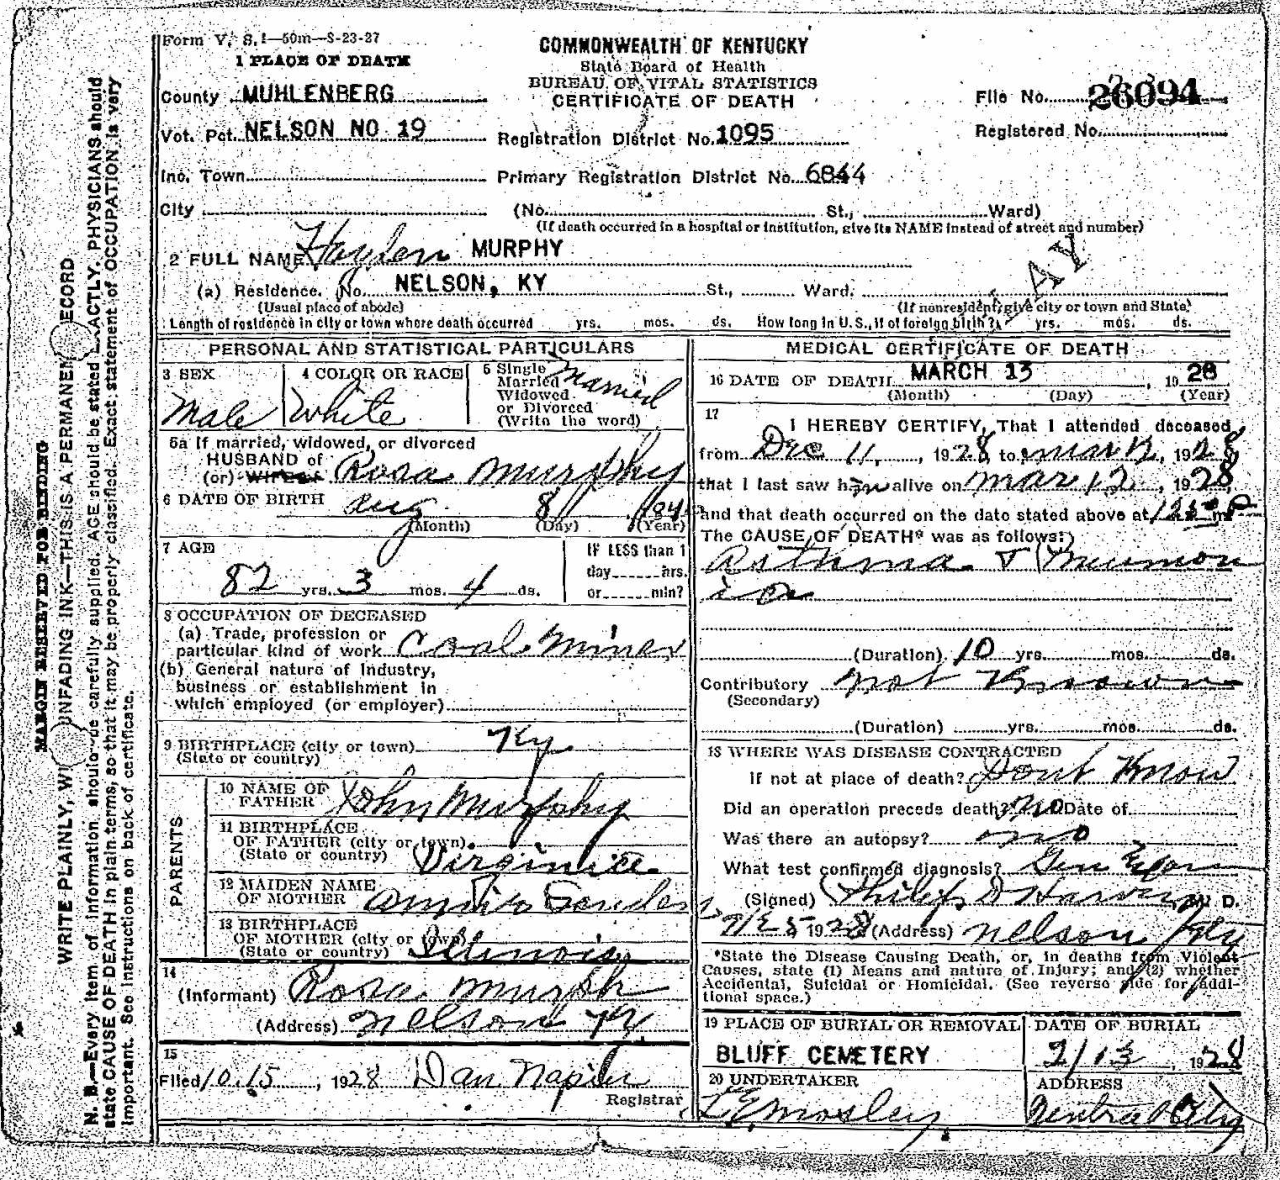 Form V. S. 1—50m—S-23-27
1 PLACE OF DEATH
County MUHLENBERG
Vot. Pct. NELSON NO 19
Inc. Town
City
COMMONWEALTH OF KENTUCKY
State Board of Health
BUREAU OF VITAL STATISTICS
CERTIFICATE OF DEATH
Registration District No. 1095
Primary Registration District No. 6844
File No. 26094
Registered No.
(No. St., Ward)
(If death occurred in a hospital or institution, give its NAME instead of street and number)
2 FULL NAME Hayden MURPHY
(a) Residence. No. NELSON, KY St., Ward.
(Usual place of abode) (If nonresident, give city or town and State)
Length of residence in city or town where death occurred yrs. mos. ds. How long in U.S., if of foreign birth? yrs. mos. ds.
PERSONAL AND STATISTICAL PARTICULARS
3 SEX
Male
4 COLOR OR RACE
White
5 Single
Married
Widowed
or Divorced
(Write the word)
Married
5a If married, widowed, or divorced
HUSBAND of
(or) WIFE of Rosa Murphy
6 DATE OF BIRTH Aug 8
(Month) (Day) (Year)
7 AGE
82 yrs. 3 mos. 4 ds.
IF LESS than 1
day hrs.
or min?
8 OCCUPATION OF DECEASED
(a) Trade, profession or
particular kind of work Coal Miner
(b) General nature of Industry,
business or establishment in
which employed (or employer)
9 BIRTHPLACE (city or town) Ky
(State or country)
PARENTS
10 NAME OF
FATHER John Murphy
11 BIRTHPLACE
OF FATHER (city or town)
(State or country) Virginia
12 MAIDEN NAME
OF MOTHER
13 BIRTHPLACE
OF MOTHER (city or town)
(State or country) Illinois
14
(Informant) Rosa Murph
(Address) Nelson Ky
15
Filed 10.15, 1928 Dan Napier
Registrar
MEDICAL CERTIFICATE OF DEATH
16 DATE OF DEATH MARCH 13, 1928
(Month) (Day) (Year)
17
I HEREBY CERTIFY, That I attended deceased
from Dec 11, 1928, to Mar 12, 1928
that I last saw him alive on Mar 12, 1928,
and that death occurred on the date stated above at m
The CAUSE OF DEATH* was as follows:
Asthma & Pneumon
ia
(Duration) 10 yrs. mos. ds.
Contributory Not Known
(Secondary)
(Duration) yrs. mos. ds.
18 WHERE WAS DISEASE CONTRACTED
If not at place of death? Dont Know
Did an operation precede death? no Date of
Was there an autopsy? no
What test confirmed diagnosis? Gen Exam
(Signed) Philip D Harvey M. D.
1928 (Address) Nelson Ky
*State the Disease Causing Death, or, in deaths from Violent
Causes, state (1) Means and nature of Injury; and (2) whether
Accidental, Suicidal or Homicidal. (See reverse side for addi-
tional space.)
19 PLACE OF BURIAL OR REMOVAL
BLUFF CEMETERY
DATE OF BURIAL
2/13, 1928
20 UNDERTAKER
L E Mosley
ADDRESS
Central City
MARGIN RESERVED FOR BINDING
WRITE PLAINLY, WI UNFADING INK—THIS IS A PERMANEN ECORD
N. B.—Every item of information should be carefully supplied. AGE should be stated EXACTLY. PHYSICIANS should
state CAUSE OF DEATH in plain terms, so that it may be properly classified. Exact statement of OCCUPATION is very
important. See instructions on back of certificate.